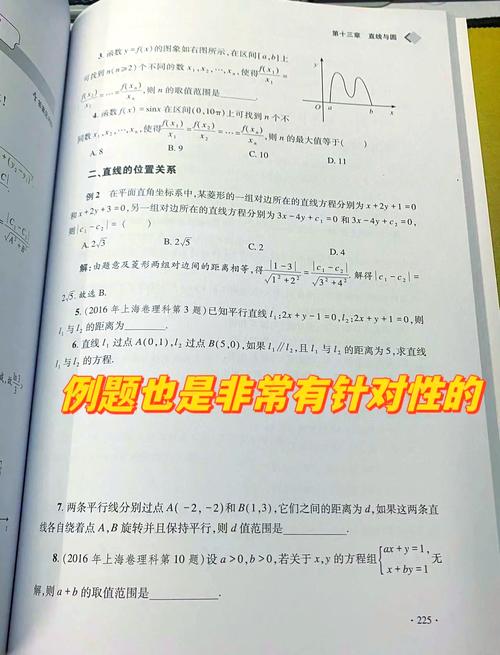 第十三章 直线与圆
3. 函数 y=f(x) 的图象如右图所示,在区间[a,b]上
可找到 n(n≥2) 个不同的数 x₁,x₂,…,xₙ,使得 f(x₁)/x₁ =
f(x₂)/x₂ = … = f(xₙ)/xₙ,则 n 的取值范围是________.
y
O a b x
4. 函数 f(x)=sinx 在区间(0,10π)上可找到 n 个不
同数 x₁,x₂,…,xₙ,使得 f(x₁)/x₁ = f(x₂)/x₂ = … = f(xₙ)/xₙ,则 n 的最大值等于( )
A. 8 B. 9 C. 10 D. 11
二、直线的位置关系
例 2 在平面直角坐标系中,某菱形的一组对边所在的直线方程分别为 x+2y+1=0
和 x+2y+3=0,另一组对边所在的直线方程分别为 3x-4y+c₁=0 和 3x-4y+c₂=0,
则|c₁-c₂|=( )
A. 2√3 B. 2√5 C. 2 D. 4
解:由题意及菱形两组对边间的距离相等,得 |1-3|/√(1²+2²) = |c₁-c₂|/√(3²+4²). 解得|c₁-c₂|=
2√5. 故选 B.
5. (2016 年上海卷理科第 3 题)已知平行直线 l₁:2x+y-1=0,l₂:2x+y+1=0,则
l₁ 与 l₂ 的距离为________.
6. 直线 l₁ 过点 A(0,1),l₂ 过点 B(5,0),如果 l₁∥l₂,且 l₁ 与 l₂ 的距离为 5,求直线
l₁ 与 l₂ 的方程.
例题也是非常有针对性的
7. 两条平行线分别过点 A(-2,-2)和 B(1,3),它们之间的距离为 d,如果这两条直
线各自绕着点 A,B 旋转并且保持平行,则 d 值范围是________.
8. (2016 年上海卷理科第 10 题)设 a>0,b>0,若关于 x,y 的方程组{ax+y=1,
x+by=1 无
解,则 a+b 的取值范围是________.
· 225 ·